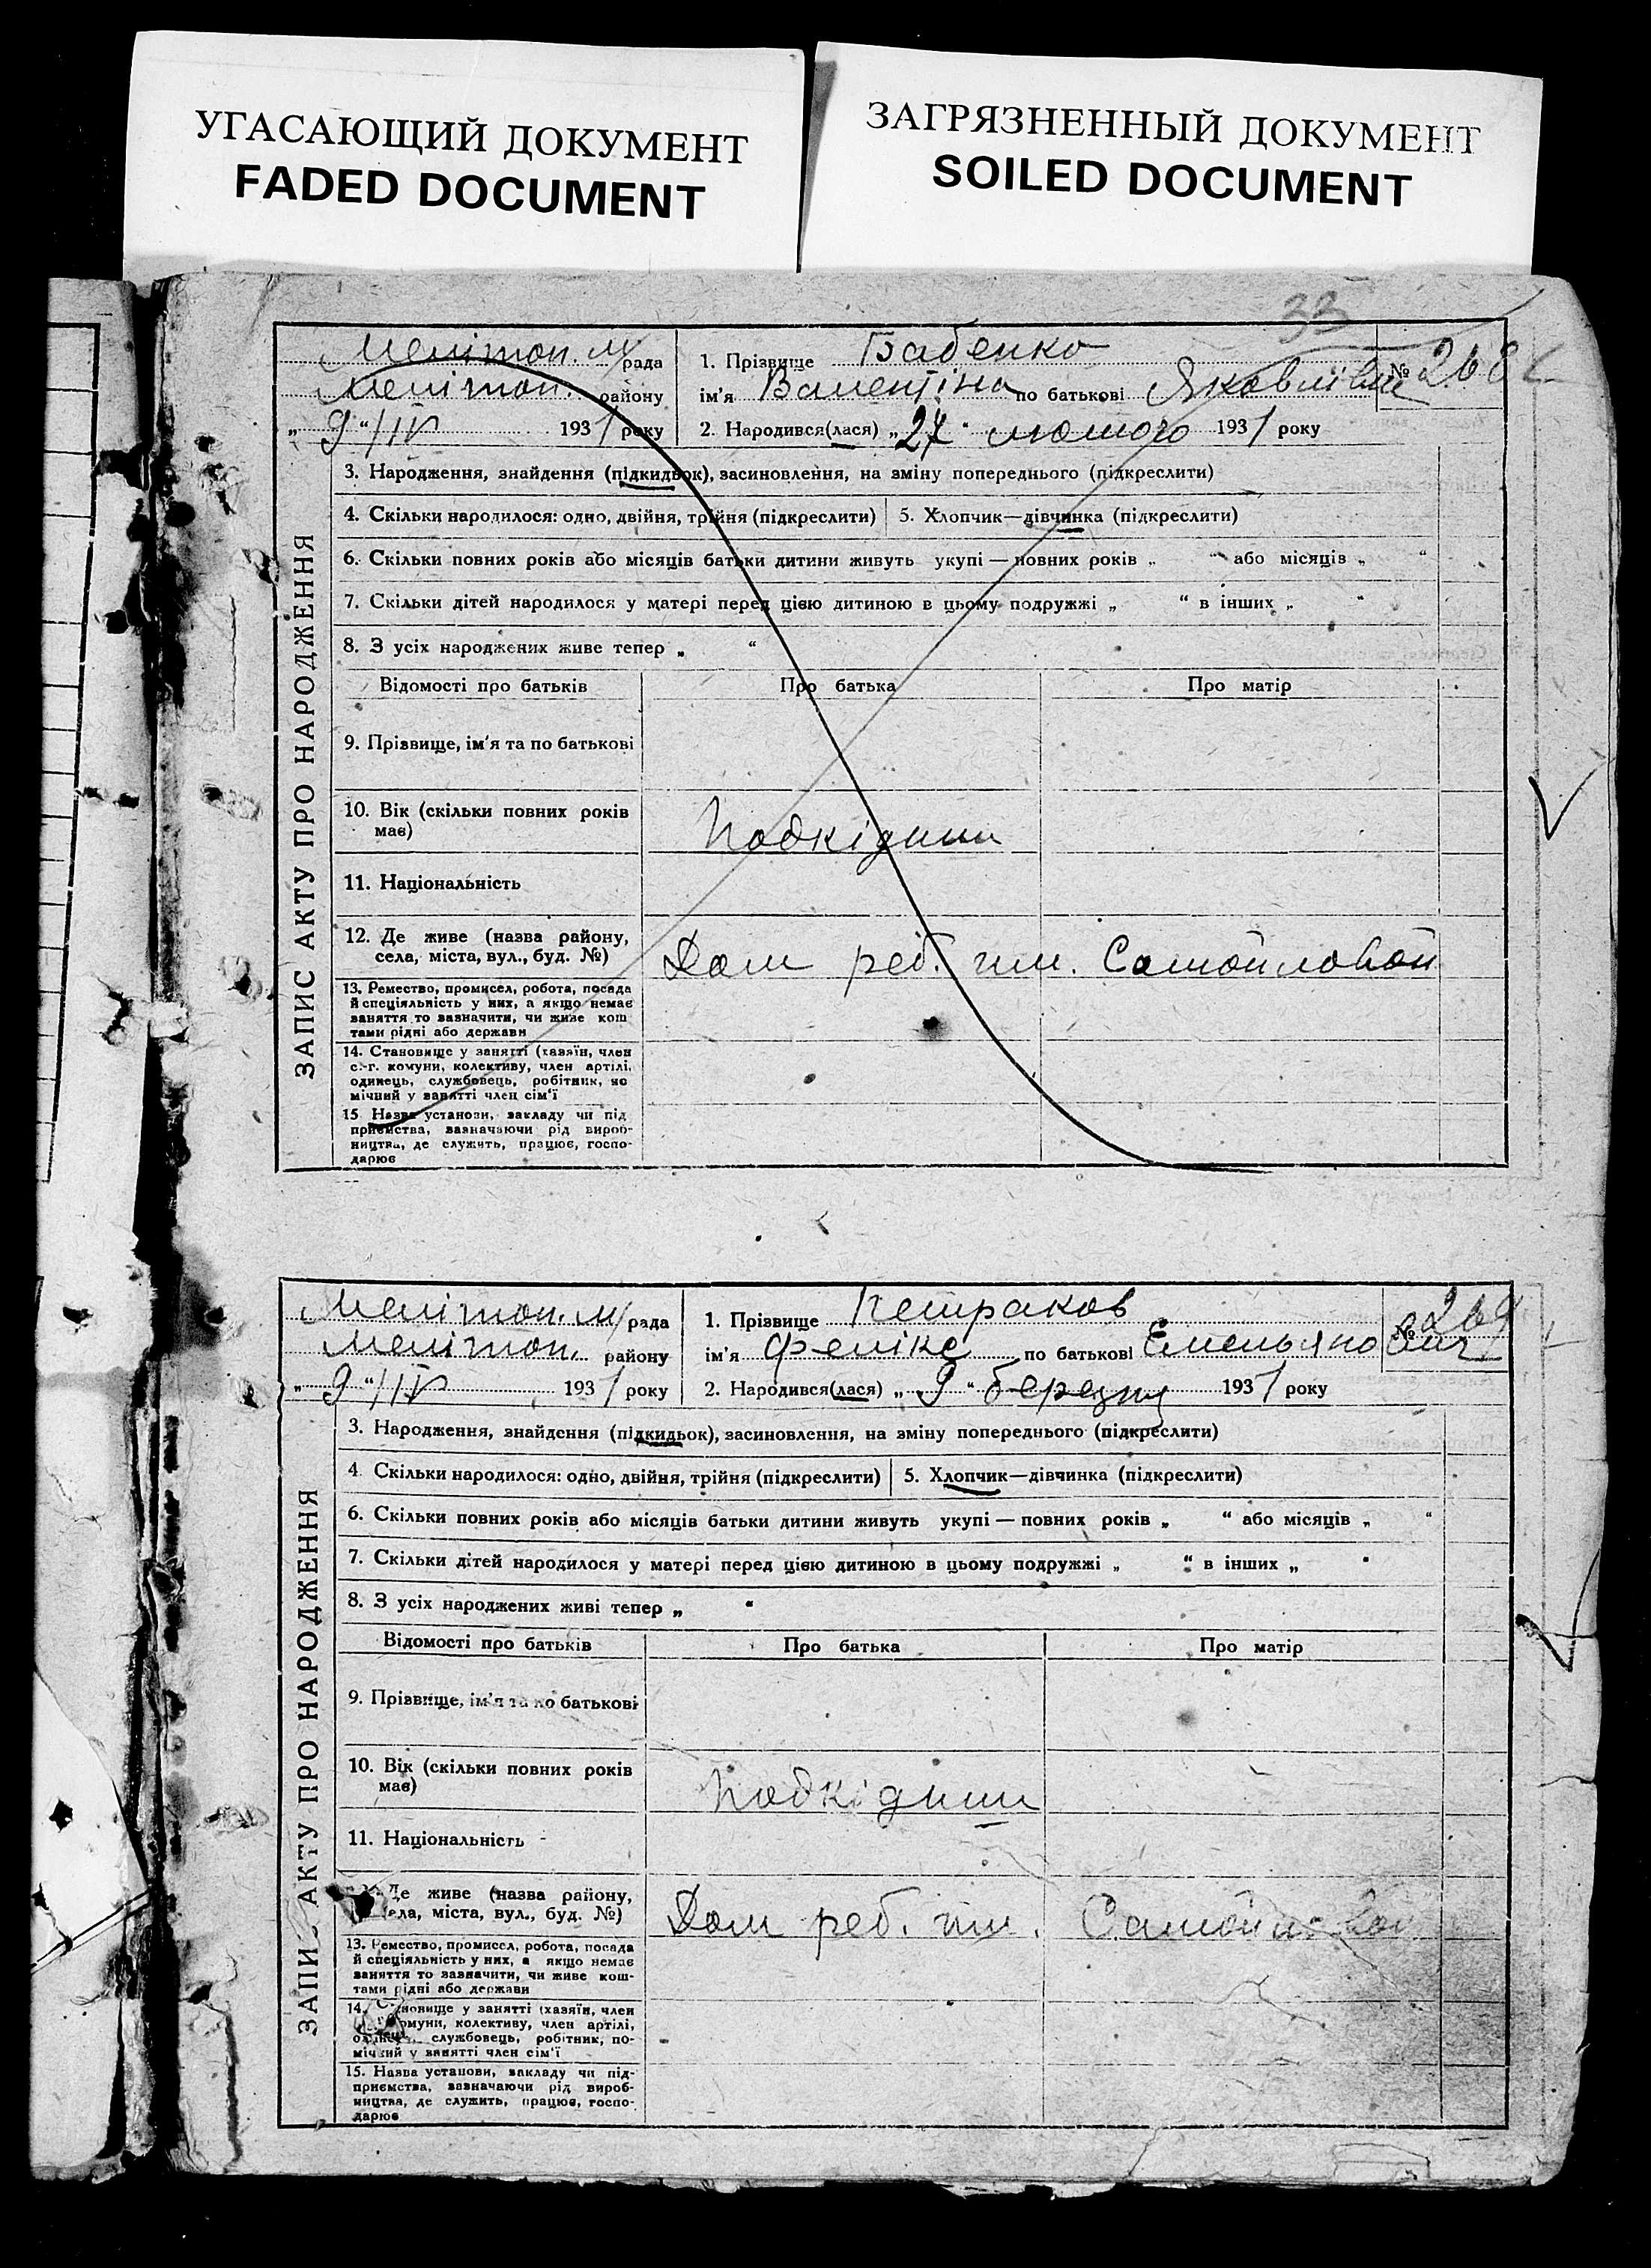 УГАСАЮЩИЙ ДОКУМЕНТ
FADED DOCUMENT
ЗАГРЯЗНЕННЫЙ ДОКУМЕНТ
SOILED DOCUMENT
33
ЗАПИС АКТУ ПРО НАРОДЖЕННЯ
Мелітоп. м/рада
Мелітоп. району
„ 9 “/IV 1931 року
1. Прізвище Бабенко
ім'я Валентіна по батькові Яковлівна
№ 268
2. Народився(лася) „27“ лютого 1931 року
3. Народження, знайдення (підкидьок), засиновлення, на зміну попереднього (підкреслити)
4. Скільки народилося: одно, двійня, трійня (підкреслити)
5. Хлопчик—дівчинка (підкреслити)
6. Скільки повних років або місяців батьки дитини живуть укупі — повних років „ “ або місяців „ “
7. Скільки дітей народилося у матері перед цією дитиною в цьому подружжі „ “ в інших „ “
8. З усіх народжених живе тепер „ “
Відомості про батьків
Про батька
Про матір
9. Прізвище, ім'я та по батькові
10. Вік (скільки повних років
має)
Подкідиш
11. Національність
12. Де живе (назва району,
села, міста, вул., буд. №)
Дом реб. им. Самойловой
13. Ремество, промисел, робота, посада
й спеціяльність у них, а якщо немає
заняття то зазначити, чи живе кош
тами рідні або держави
14. Становище у занятті (хазяїн, член
с.-г. комуни, колективу, член артілі,
одинець, службовець, робітник, по
мічний у занятті член сім'ї
15 Назва установи, закладу чи під
приємства, зазначаючи рід вироб-
ництва, де служить, працює, госпо-
дарює
ЗАПИС АКТУ ПРО НАРОДЖЕННЯ
Мелітоп. м/рада
Мелітоп. району
„ 9 “/IV 1931 року
1. Прізвище Петраков
ім'я Фелікс по батькові Емельянович
№ 269
2. Народився(лася) „ 9 “ березня 1931 року
3. Народження, знайдення (підкидьок), засиновлення, на зміну попереднього (підкреслити)
4. Скільки народилося: одно, двійня, трійня (підкреслити)
5. Хлопчик—дівчинка (підкреслити)
6. Скільки повних років або місяців батьки дитини живуть укупі — повних років „ “ або місяців „ “
7. Скільки дітей народилося у матері перед цією дитиною в цьому подружжі „ “ в інших „ “
8. З усіх народжених живі тепер „ “
Відомості про батьків
Про батька
Про матір
9. Прізвище, ім'я та по батькові
10. Вік (скільки повних років
має)
Подкідиш
11. Національність
Де живе (назва району,
села, міста, вул., буд. №)
Дом реб. им. Самойловой
13. Ремество, промисел, робота, посада
й спеціяльність у них, а якщо немає
заняття то зазначити, чи живе кош-
тами рідні або держави
14. Становище у занятті (хазяїн, член
комуни, колективу, член артілі,
одинець, службовець, робітник, по-
мічний у занятті член сім'ї
15. Назва установи, закладу чи під-
приємства, зазначаючи рід вироб-
ництва, де служить, працює, госпо-
дарює